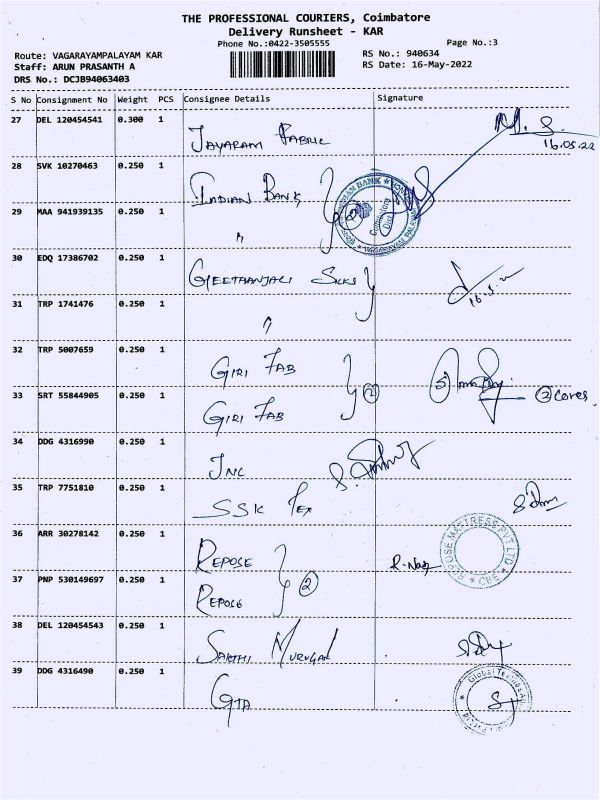 THE PROFESSIONAL COURIERS, Coimbatore
Delivery Runsheet - KAR
Phone No.:0422-3505555
Page No.:3
Route: VAGARAYAMPALAYAM KAR
RS No.: 940634
Staff: ARUN PRASANTH A
RS Date: 16-May-2022
DRS No.: DCJB94063403
S No Consignment No Weight PCS Consignee Details Signature
27 DEL 120454541 0.300 1 JAYARAM FABRIC M. S. 16.05.22
28 SVK 10270463 0.250 1 INDIAN BANK
29 MAA 941939135 0.250 1 " 2
30 EDQ 17386702 0.250 1 GEETHANJALI SILKS
31 TRP 1741476 0.250 1 "
32 TRP 5007659 0.250 1 GIRI FAB
33 SRT 55844905 0.250 1 GIRI FAB 2 2 Cores.
34 DDG 4316990 0.250 1 JNC
35 TRP 7751810 0.250 1 SSK TEX
36 ARR 30278142 0.250 1 REPOSE REPOSE MATTRESS PVT LTD CBE
37 PNP 530149697 0.250 1 REPOSE 2
38 DEL 120454543 0.250 1 SAKTHI MURUGAN
39 DDG 4316490 0.250 1 GTA